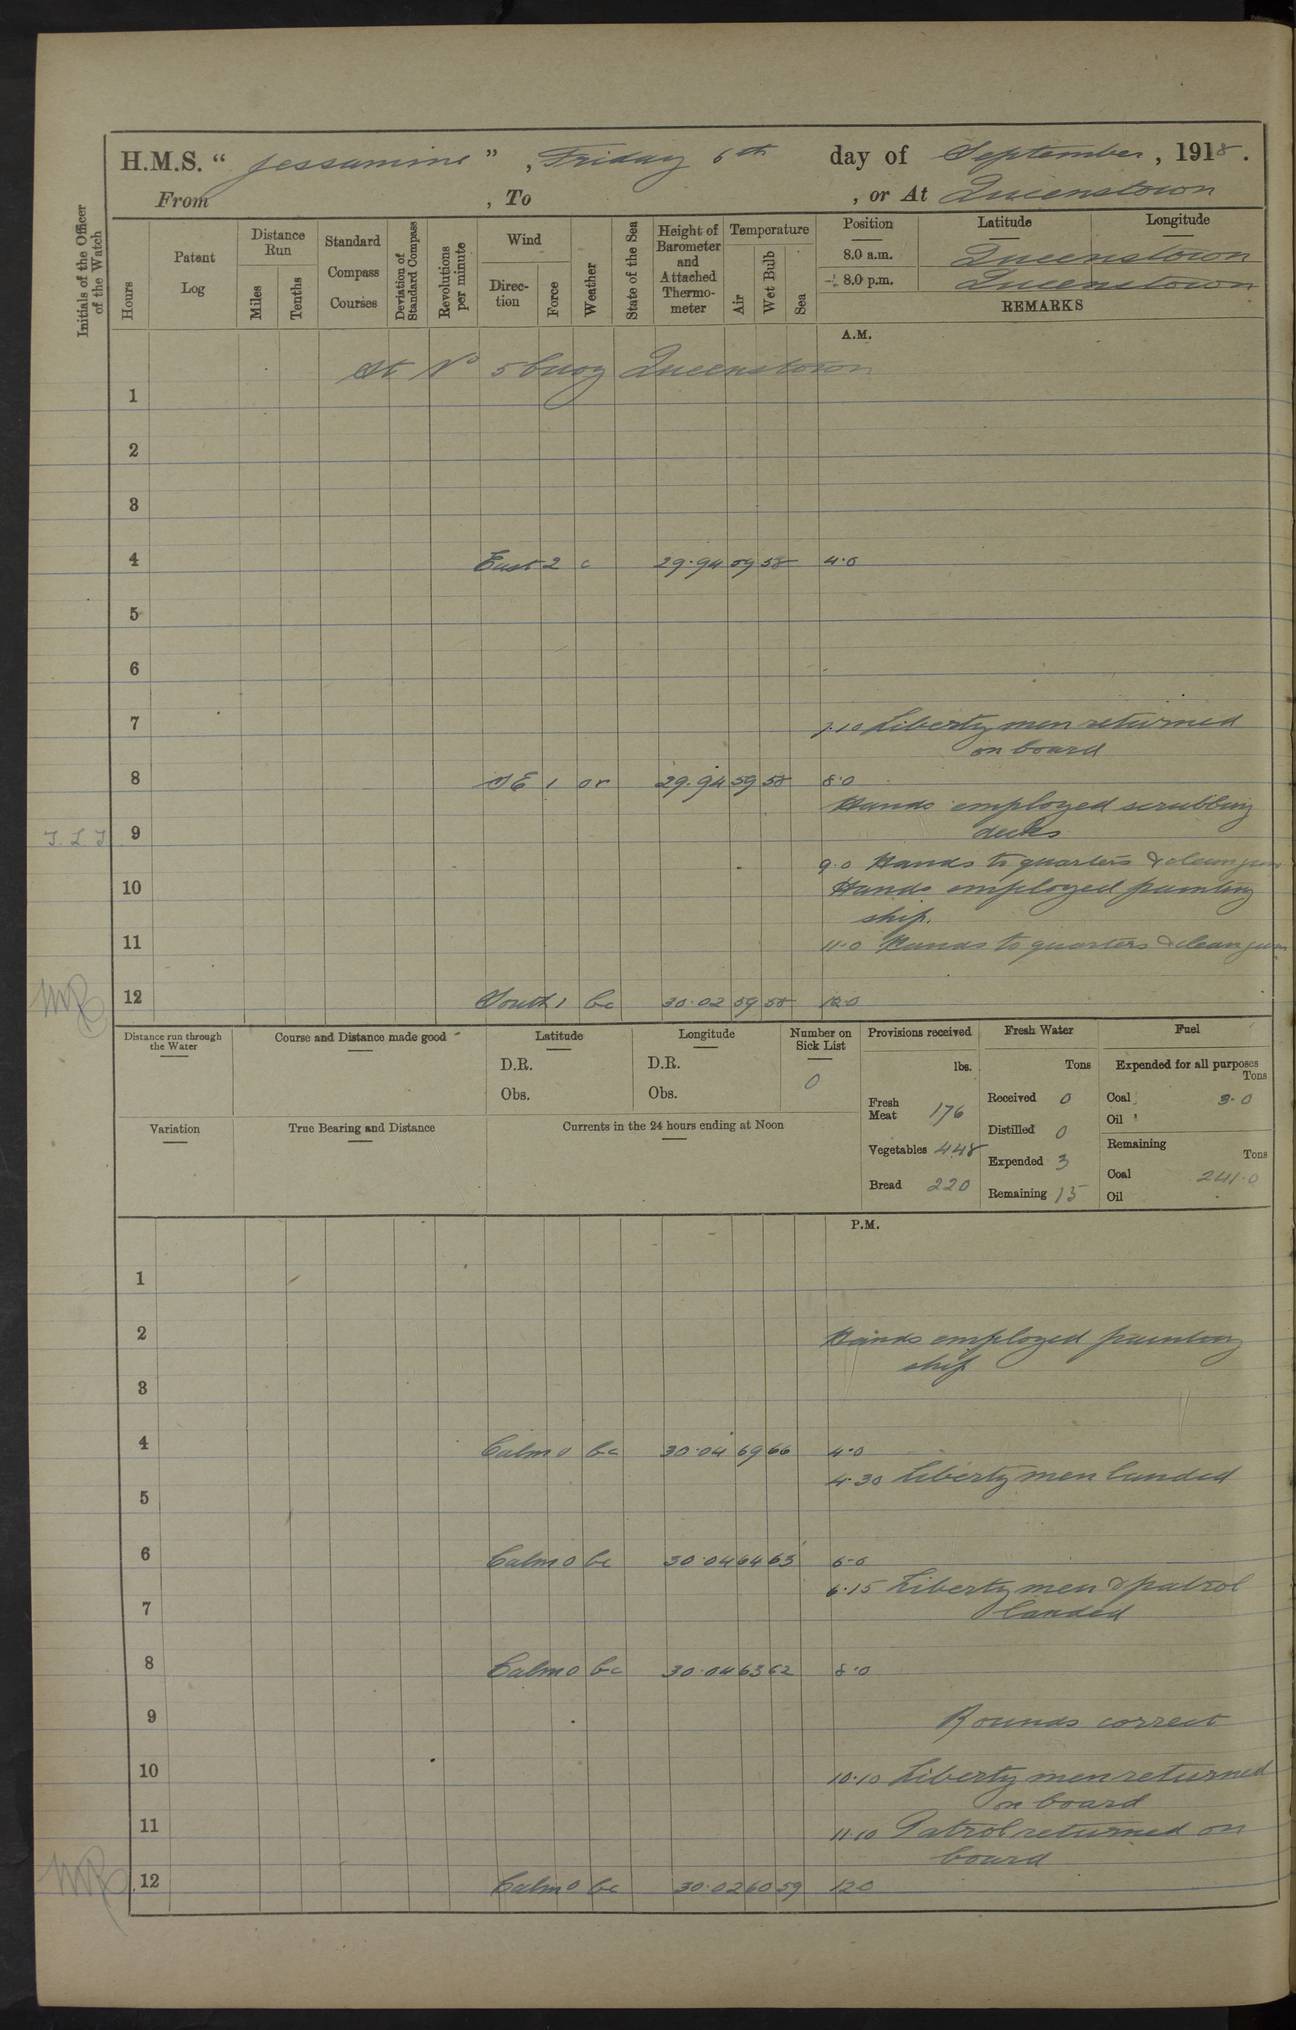 H.M.S. “ Jessamine ” , Friday 6th day of September , 1918 .
From , To , or At Queenstown
Initials of the Officer of the Watch
Hours
Patent Log
Distance Run
Miles
Tenths
Standard Compass Courses
Deviation of Standard Compass
Revolutions per minute
Wind
Direc-tion
Force
Weather
State of the Sea
Height of Barometer and Attached Thermo-meter
Temperature
Air
Wet Bulb
Sea
Position Latitude Longitude
8.0 a.m. Queenstown
8.0 p.m. Queenstown
REMARKS
A.M.
At No 5 buoy Queenstown
1
2
3
4 East 2 c 29.94 59 58 4.0
5
6
7 7.10 Liberty men returned
on board
8 SE 1 or 29.94 59 58 8.0
Hands employed scrubbing
9 decks
9.0 Hands to quarters & clean guns
10 Hands employed painting
ship.
11 11.0 Hands to quarters & clean guns
12 South 1 bc 30.02 59 58 12.0
Distance run through the Water
Course and Distance made good
Latitude
D.R.
Obs.
Longitude
D.R.
Obs.
Number on Sick List
0
Variation
True Bearing and Distance
Currents in the 24 hours ending at Noon
Provisions received
lbs.
Fresh Meat 176
Vegetables 448
Bread 220
Fresh Water
Tons
Received 0
Distilled 0
Expended 3
Remaining 15
Fuel
Expended for all purposes
Tons
Coal 3.0
Oil
Remaining
Tons
Coal 241.0
Oil
P.M.
1
2 Hands employed painting
ship
3
4 Calm 0 bc 30.04 69 66 4.0
4.30 Liberty men landed
5
6 Calm 0 bc 30.04 64 63 6.0
6.15 Liberty men & patrol
7 landed
8 Calm 0 bc 30.04 63 62 8.0
9 Rounds correct
10 10.10 Liberty men returned
on board
11 11.10 Patrol returned on
board
12 Calm 0 bc 30.02 60 59 12.0